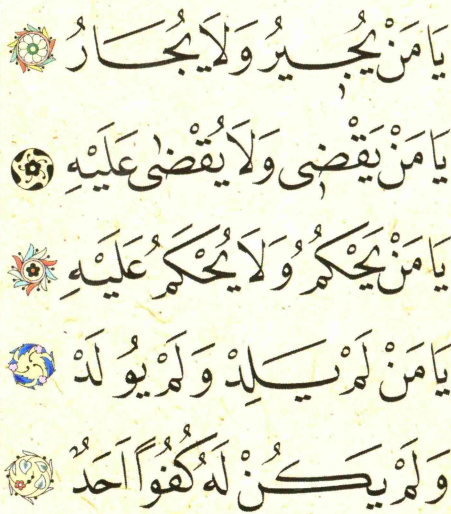 يَا مَنْ يُجِيرُ وَلَا يُجَارُ
يَا مَنْ يَقْضِى وَلَا يُقْضٰى عَلَيْهِ
يَا مَنْ يَحْكُمُ وَلَا يُحْكَمُ عَلَيْهِ
يَا مَنْ لَمْ يَلِدْ وَلَمْ يُولَدْ
وَلَمْ يَكُنْ لَهُ كُفُوًا اَحَدٌ